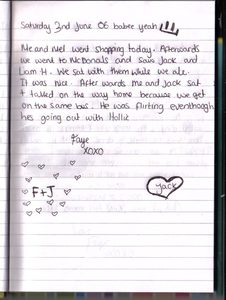 Saturday 2nd June 06 babee yeah!
Me and Mel went shopping today. Afterwards
we went to McDonals and saw Jack and
Liam H. We sat with them while we ate.
It was nice. After wards me and Jack sat
+ talked on the way home because we get
on the same bus. He was flirting eventhough
hes going out with Hollie
Faye
xoxo
F+J
Jack